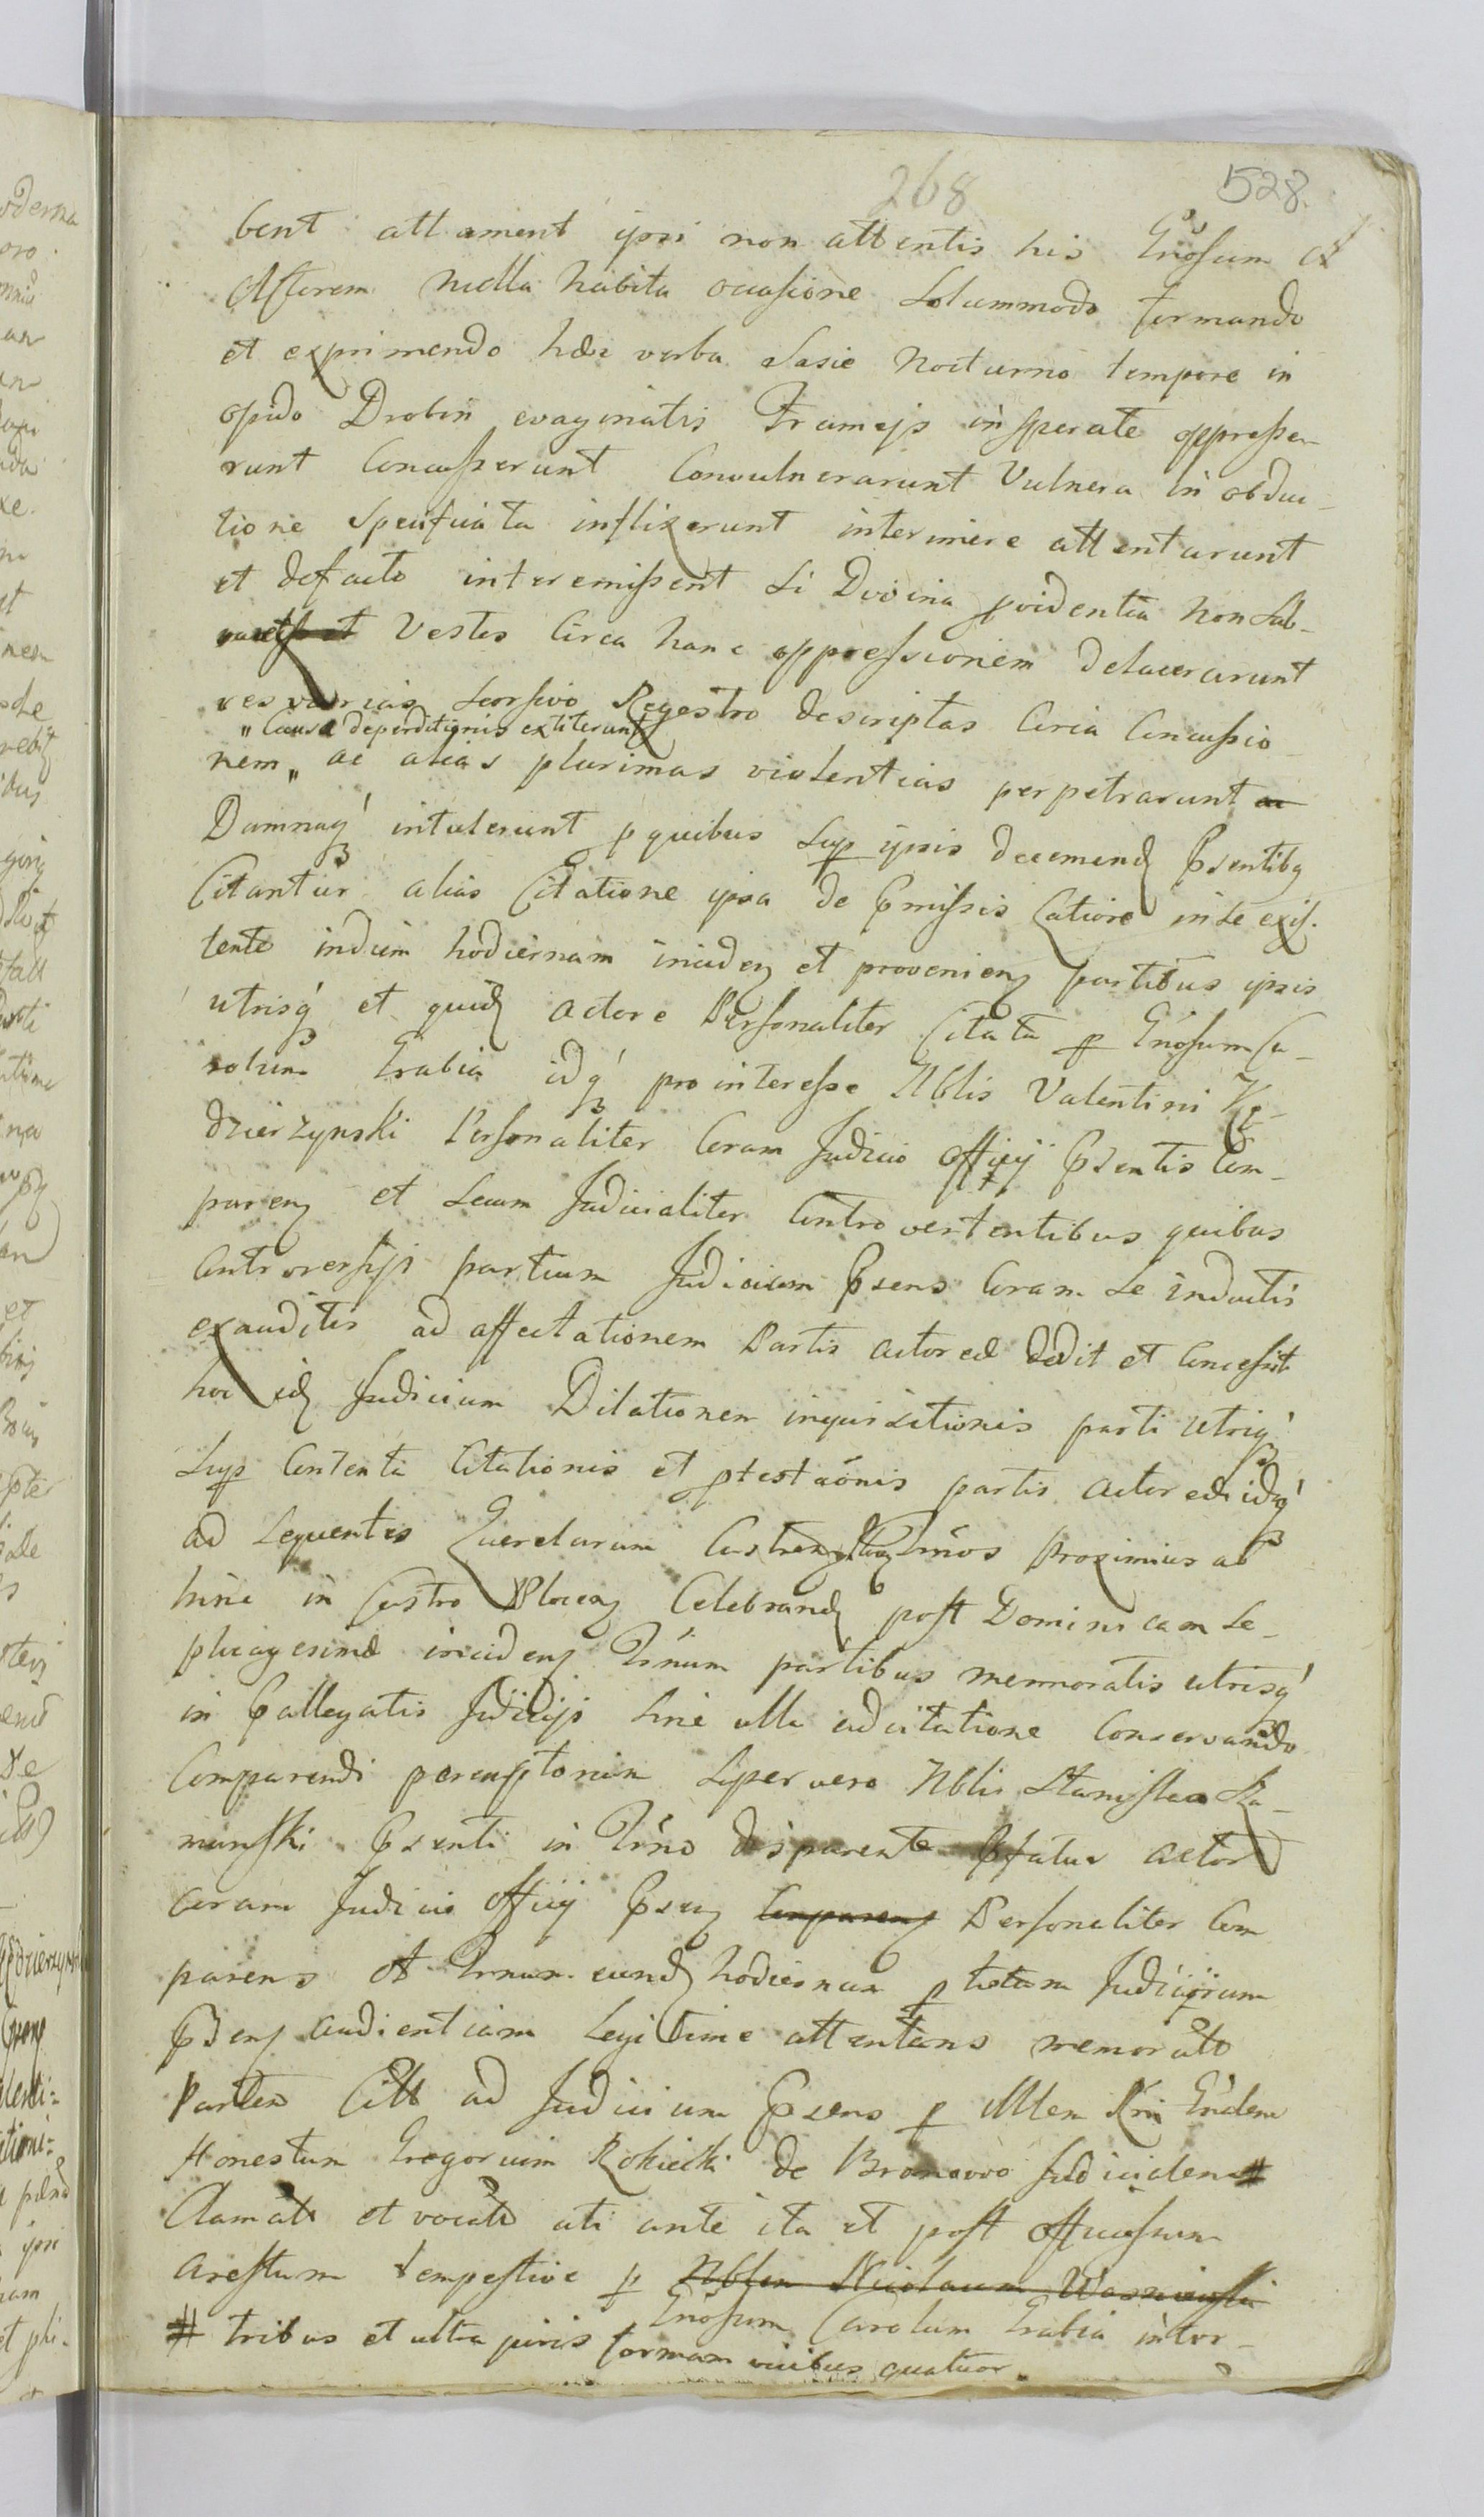 268 528.
bent attament ipsi non attentis his Gnosum A
Actorem nulla habita occasione Solummodo formando
et exprimendo hæc verba Sasie Nocturno tempore in
opido Drobin evaginatis Frameis insperate oppresse-
runt Concusserunt Convulnerarunt Vulnera in obduc-
tione Specificata inflixerunt interimere attentarunt
et defacto interemissent Si Divina pvidentia non Sub-
Vestes Circa hanc oppressionem delacerarunt
res varias Seorsivo Regestro descriptas Circa Concussio
" Causa deperditionis extiterunt
nem " ac alias plurimas violentias perpetrarunt ac
Damnaq' intulerunt p quibus Sup ipsis decernend Psentibq
Citantur alias Citatione ipsa de Pmissis Catione in Se exis-
tente indiem hodiernam incideñ et provenieñ partibus ipsis
utrisq' et quid actore Personaliter Citata p Gnosum Ca-
rolum Grabia idq' pro interesse Nblis Valentini Kę-
dzierzynski Personaliter Coram Judicio officij Psentis Com-
pareñ et Secum Judicialiter Controvertentibus quibus
Controversijs partium Judicium Psens Coram Se inductis
exauditis ad affectationem Partis actoreæ dedit et Concessit
hoc id Judicium Dilationem inquisitionis parti utriq'
Sup Contenta Citationis et ptestaõnis partis actoreæ idq'
ad Sequentes Querelarum Tmõs proximius ab
hinc in Castro Ploceñ Celebrand post Dominicam Se-
ptuagesimæ incideñ Tmnum partibus memoratis utrisq'
in Pallegatis Judicijs Sine ulla adcitatione Conservando
Comparendi peremptorium Super vero Nbli Stanislao Ka-
minski Psenti in Trno disparente Pfatus actor
Coram Judicio Officij Pseñ Compareñ Personaliter Com
parens et Trnum eund hodiernum p totam Judiciorum
Pseñ audientiam Legitime attentans memorato
Partem Citt ad Judicium Psens p Mlem Rni Gñalem
Honestum Gregorium Rokicki de Bromovo Judicialem #
Clamatt et vocatt uti ante ita et post officiosum
Arestum tempestive p Nblem Nicolaum
Gnosum Carolum Grabia inter-
# tribus et ultra juris formam vicibus quatuor.